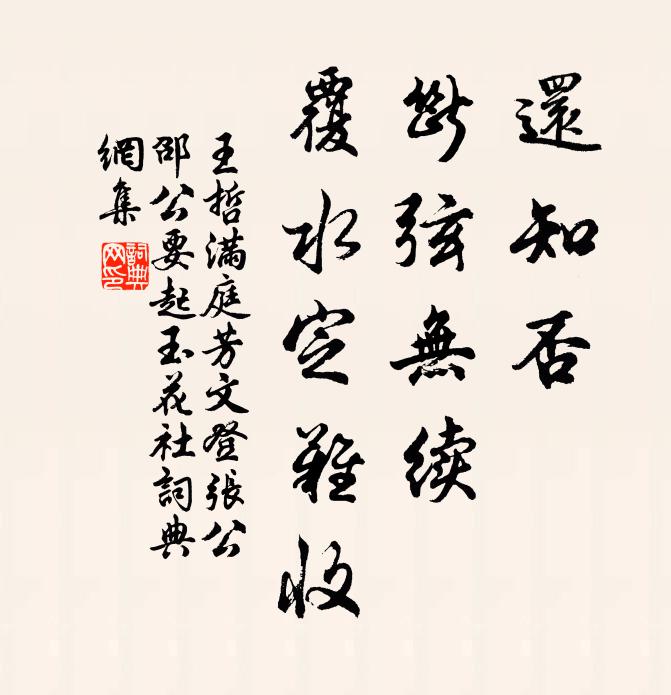 還知否
斷弦無續
覆水定難收
王哲滿庭芳文登張公
邵公要起玉花社詞典
網集
詞典網印